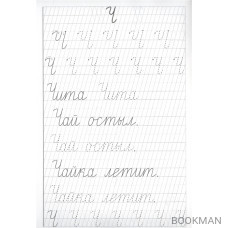 Ч
Ч Ч Ч Ч Ч Ч
Ч Ч Ч Ч Ч Ч Ч
Чита Чита
Чай остыл.
Чай остыл.
Чайка летит.
Чайка летит.
Ч Ч Ч Ч Ч Ч Ч
BOOKMAN